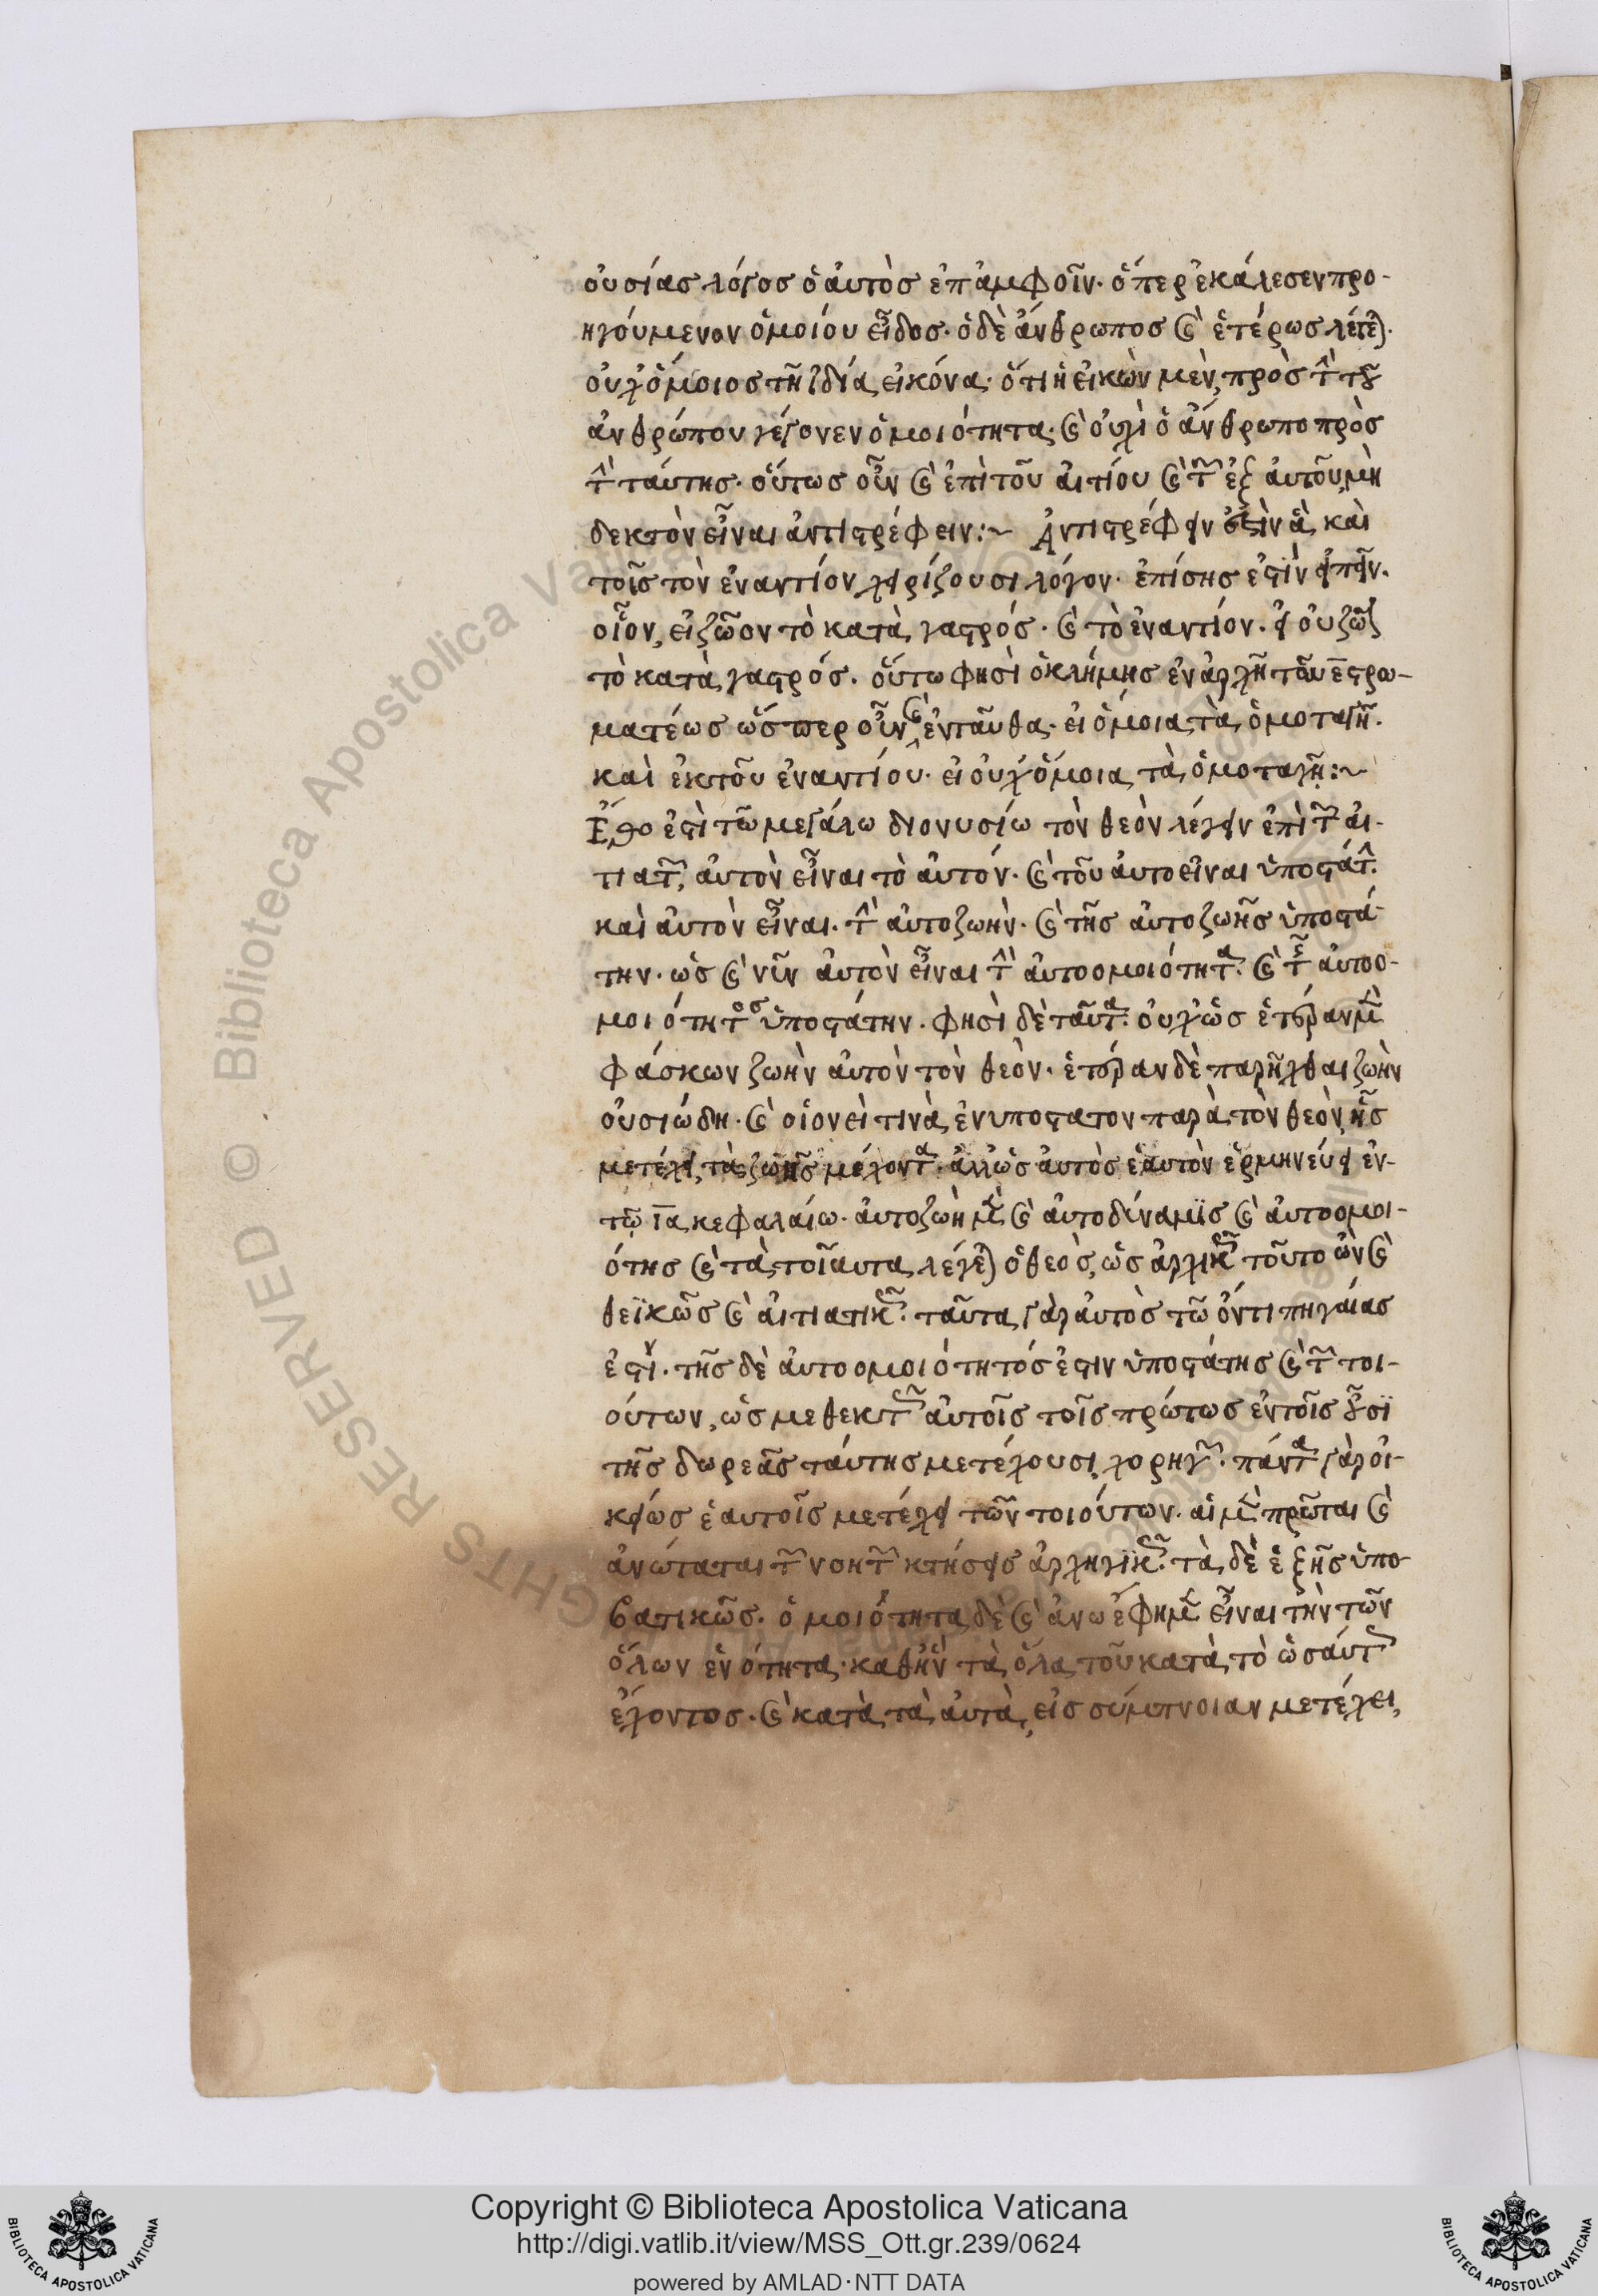 οὐσίας λόγος ὁ αὐτὸς ἐπ ἀμφοῖν· ὅπερ ἐκάλεσεν προ-
ηγούμενον ὁμοίου εἶδος· ὁ δὲ ἄνθρωπος καὶ ἑτέρως λέγεται·
οὐχ ὅμοιος τῆ ἰδία εἰκόνα· ὅτι ἡ εἰκὼν μὲν, πρὸς τὴν τοῦ
ἀνθρώπου γέγονεν ὁμοιότητα· καὶ οὐχὶ ὁ ἄνθρωπο πρὸς
τὴν ταύτης· οὕτως οὖν καὶ ἐπὶ τοῦ αἰτίου καὶ τῶν ἐξ αὐτοῦ, μὴ
δεκτὸν εἶναι ἀντιστρέφειν:~ Ἀντιστρέφειν καὶ
τοῖς τὸν ἐναντίον χειρίζουσι λόγον· ἐπίσης ἐστὶν εἰπεῖν·
οἷον, εἰ ζῶον τὸ κατὰ γαστρός· καὶ τὸ ἐναντίον· εἰ οὐ ζῶον
τὸ κατὰ γαστρός· οὕτω φησὶ ὁ κλήμης ἐν ἀρχῆ τοῦ ε στρω-
ματέως ὥσπερ οὖν καὶ ἐνταῦθα· εἰ ὅμοια τὰ ὁμοταγῆ·
καὶ ἐκ τοῦ ἐναντίου· εἰ οὐχ ὅμοια τὰ ὁμοταγῆ:~
Ἔθο ἐστὶ τῶ μεγάλω διονυσίω τὸν θεὸν λέγειν ἐπὶ τῶν αἰ-
τιατῶν, αὐτὸν εἶναι τὸ αὐτόν· καὶ τοῦ αὐτοεῖναι ὑποστάτην·
καὶ αὐτὸν εἶναι· τὴν αὐτοζωήν· καὶ τῆς αὐτοζωῆς ὑποστά-
την· ὡς καὶ νῦν αὐτὸν εἶναι τὴν αὐτοομοιότητα· καὶ τῆς αὐτοο-
μοιότητος ὑποστάτην· φησὶ δὲ ταῦτα· οὐχ ὡς ἑτέραν μὲν
φάσκων ζωὴν αὐτὸν τὸν θεὸν· ἑτέραν δὲ παρῆχθαι ζωὴν
οὐσιώδη· καὶ οἱονεὶ τινὰ ἐνυποστατον παρὰ τὸν θεὸν, ἧς
μετέχει τὰ ζωῆς μέχοντα· ἀλλ ὡς αὐτὸς ἑαυτὸν ἑρμηνεύει ἐν-
τῶ ια κεφαλαίω· αὐτοζωὴ μὲν καὶ αὐτοδύναμις καὶ αὐτοομοι-
ότης καὶ τὰ τοῖαυτα λέγεται ὁ θεὸς, ὡς ἀρχικῶς τοῦτο ὢν καὶ
θεϊκῶς καὶ αἰτιατικῶς· ταῦτα γὰρ αὐτὸς τῶ ὄντι πηγαίας
ἐστίν· τῆς δὲ αὐτοομοιότητός ἐστιν ὑποστάτης καὶ τῶν τοι-
ούτων, ὡς μεθεκτῶς αὐτοῖς τοῖς πρώτως ἐν τοῖς οὖσϊ
τῆς δωρεᾶς ταύτης μετέχουσι χορηγῶν· πάντα γὰρ οἰ-
κείως ἑαυτοῖς μετέχει τῶν τοιούτων· αἱ μὲν πρῶται καὶ
ἀνώταται τῶν νοητῶν κτήσεις ἀρχηγϊκῶς· τὰ δὲ ἑξῆς ὑπο-
βατικῶς· ὁμοιότητα δὲ καὶ ἀνω ἔφημεν εἶναι τὴν τῶν
ὅλων ἑνότητα· καθἣν τὰ ὅλα τοῦ κατὰ τὸ ὡσαύτως
ἔχοντος· καὶ κατὰ τὰ αὐτὰ, εἰς σύμπνοιαν μετέχει,
Copyright © Biblioteca Apostolica Vaticana
http://digi.vatlib.it/view/MSS_Ott.gr.239/0624
powered by AMLAD·NTT DATA